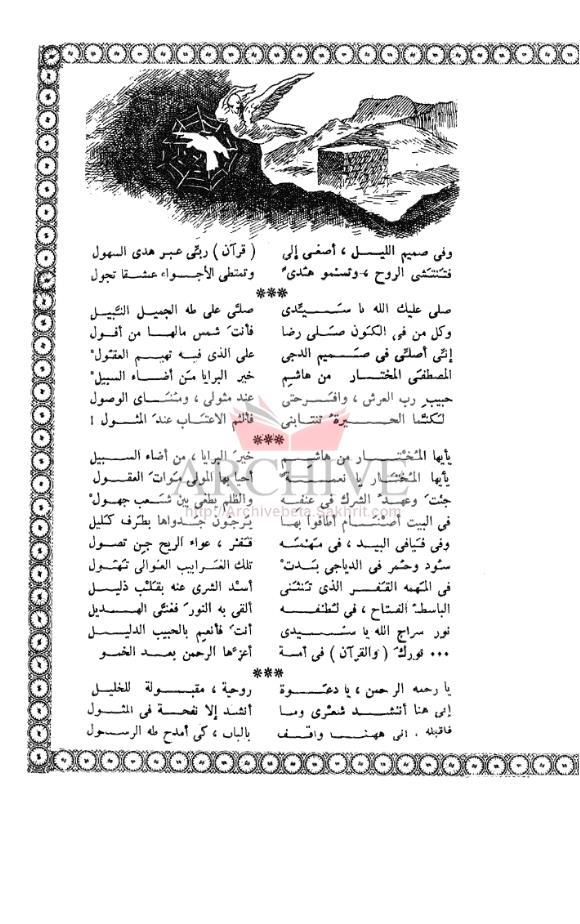 وفى صميم الليـل ، أصغى إلى ( قرآن ) ربّى عبـر هدى السهول
فتنتشى الروح ، وتسمو هدىً وتمتطى الأجـواء عشـقا تجول
***
صلى عليك الله يا سـيـدى صلّى على طه الجميل النّبيل
وكل من فى الكون صـلى رضا فأنتَ شمس مالهـا من أفـول
إنّى أصلّى فى صـميم الدجى على الذى فيـه تهيـم العقـولْ
المصطفى المختـار من هاشـم خير البرايا مَن أضـاء السبيلْ
حبيب رب العرش ، وافـرحتى عند مثولى ، ومُنـاى الوصول
لكنّما الحـيـرة تنتابنى فالثم الأعتـاب عنـد المثـول !
***
يأيها المُخْتـار من هاشـم خيرَ البرايا ، من أضاء السبيل
يأيها المُخْتـار يا نعمـة أحيا بها المولى مَوات العقـول
جئتَ وعهـد الشرك فى عنفـه والظلم يطغى بين شـعب جهولْ
فى البيت أصـنام أطافوا بهـا يرجـون جـدواها بطَرف كليل
وفى فيـافى البيـد ، فى مَهْمَـه قفـر ، عواء الريح جـن تصـول
سـود وحُمـر فى الدياجى بَدتْ تلك الغـرابيب العـوالى تهـول
فى المهمه القفـر الذى تنثنى أسْد الشرى عنه بقلْب ذليـل
الباسطَ الفتـاح ، فى لـطفـه ألقى به النورَ فغنّى الهـديل
نور سراج الله يا سـيـدى أنتَ فأنعِم بالحبيب الدليـل
••• نورك ( والقرآن ) فى أمـة أعزّها الرحمن بعـد الخمـو
***
يا رحمة الرحمن ، يا دعـوة روحية ، مقبـولة للخليل
إنى هنا أنشـد شعرى ومـا أنشد إلا نفحـة فى المثـول
فاقبله . إنى ههنـا واقـف بالباب ، كى أمدح طه الرسـول
ARCHIVE
http://Archivebeta.Sakhrit.com